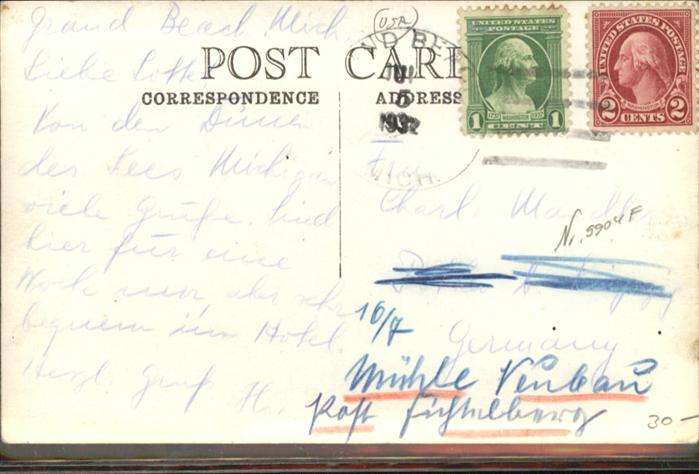 Grand Beach Mich
Liebe Lotte
Von den Dünen
des Sees Michigan
viele Grüße. Sind
hier für eine
Woche nur, aber sehr
bequem im Hotel
Herzl. Gruß H.
(USA)
POST CARD
CORRESPONDENCE
ADDRESS
ND BE
JUL
5
1932
MICH.
UNITED STATES
POSTAGE
1 1
UNITED STATES POSTAGE
WASHINGTON
2 2
CENTS
Frau
Charl.
Nr. 5904F
Germany
16/7
Mühle Neubau
Post Fichtelberg
30-